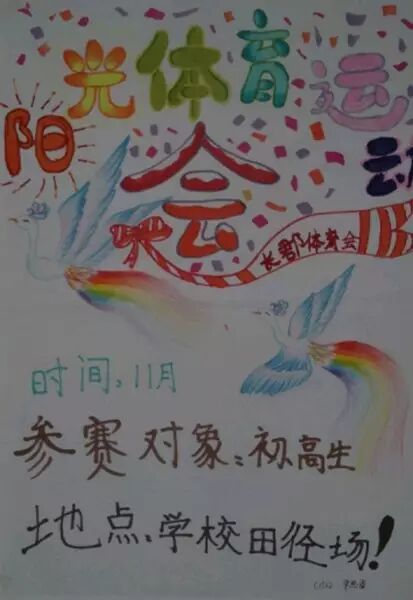 阳光体育运动
会
长郡体育会
时间:11月
参赛对象:初高生
地点:学校田径场!